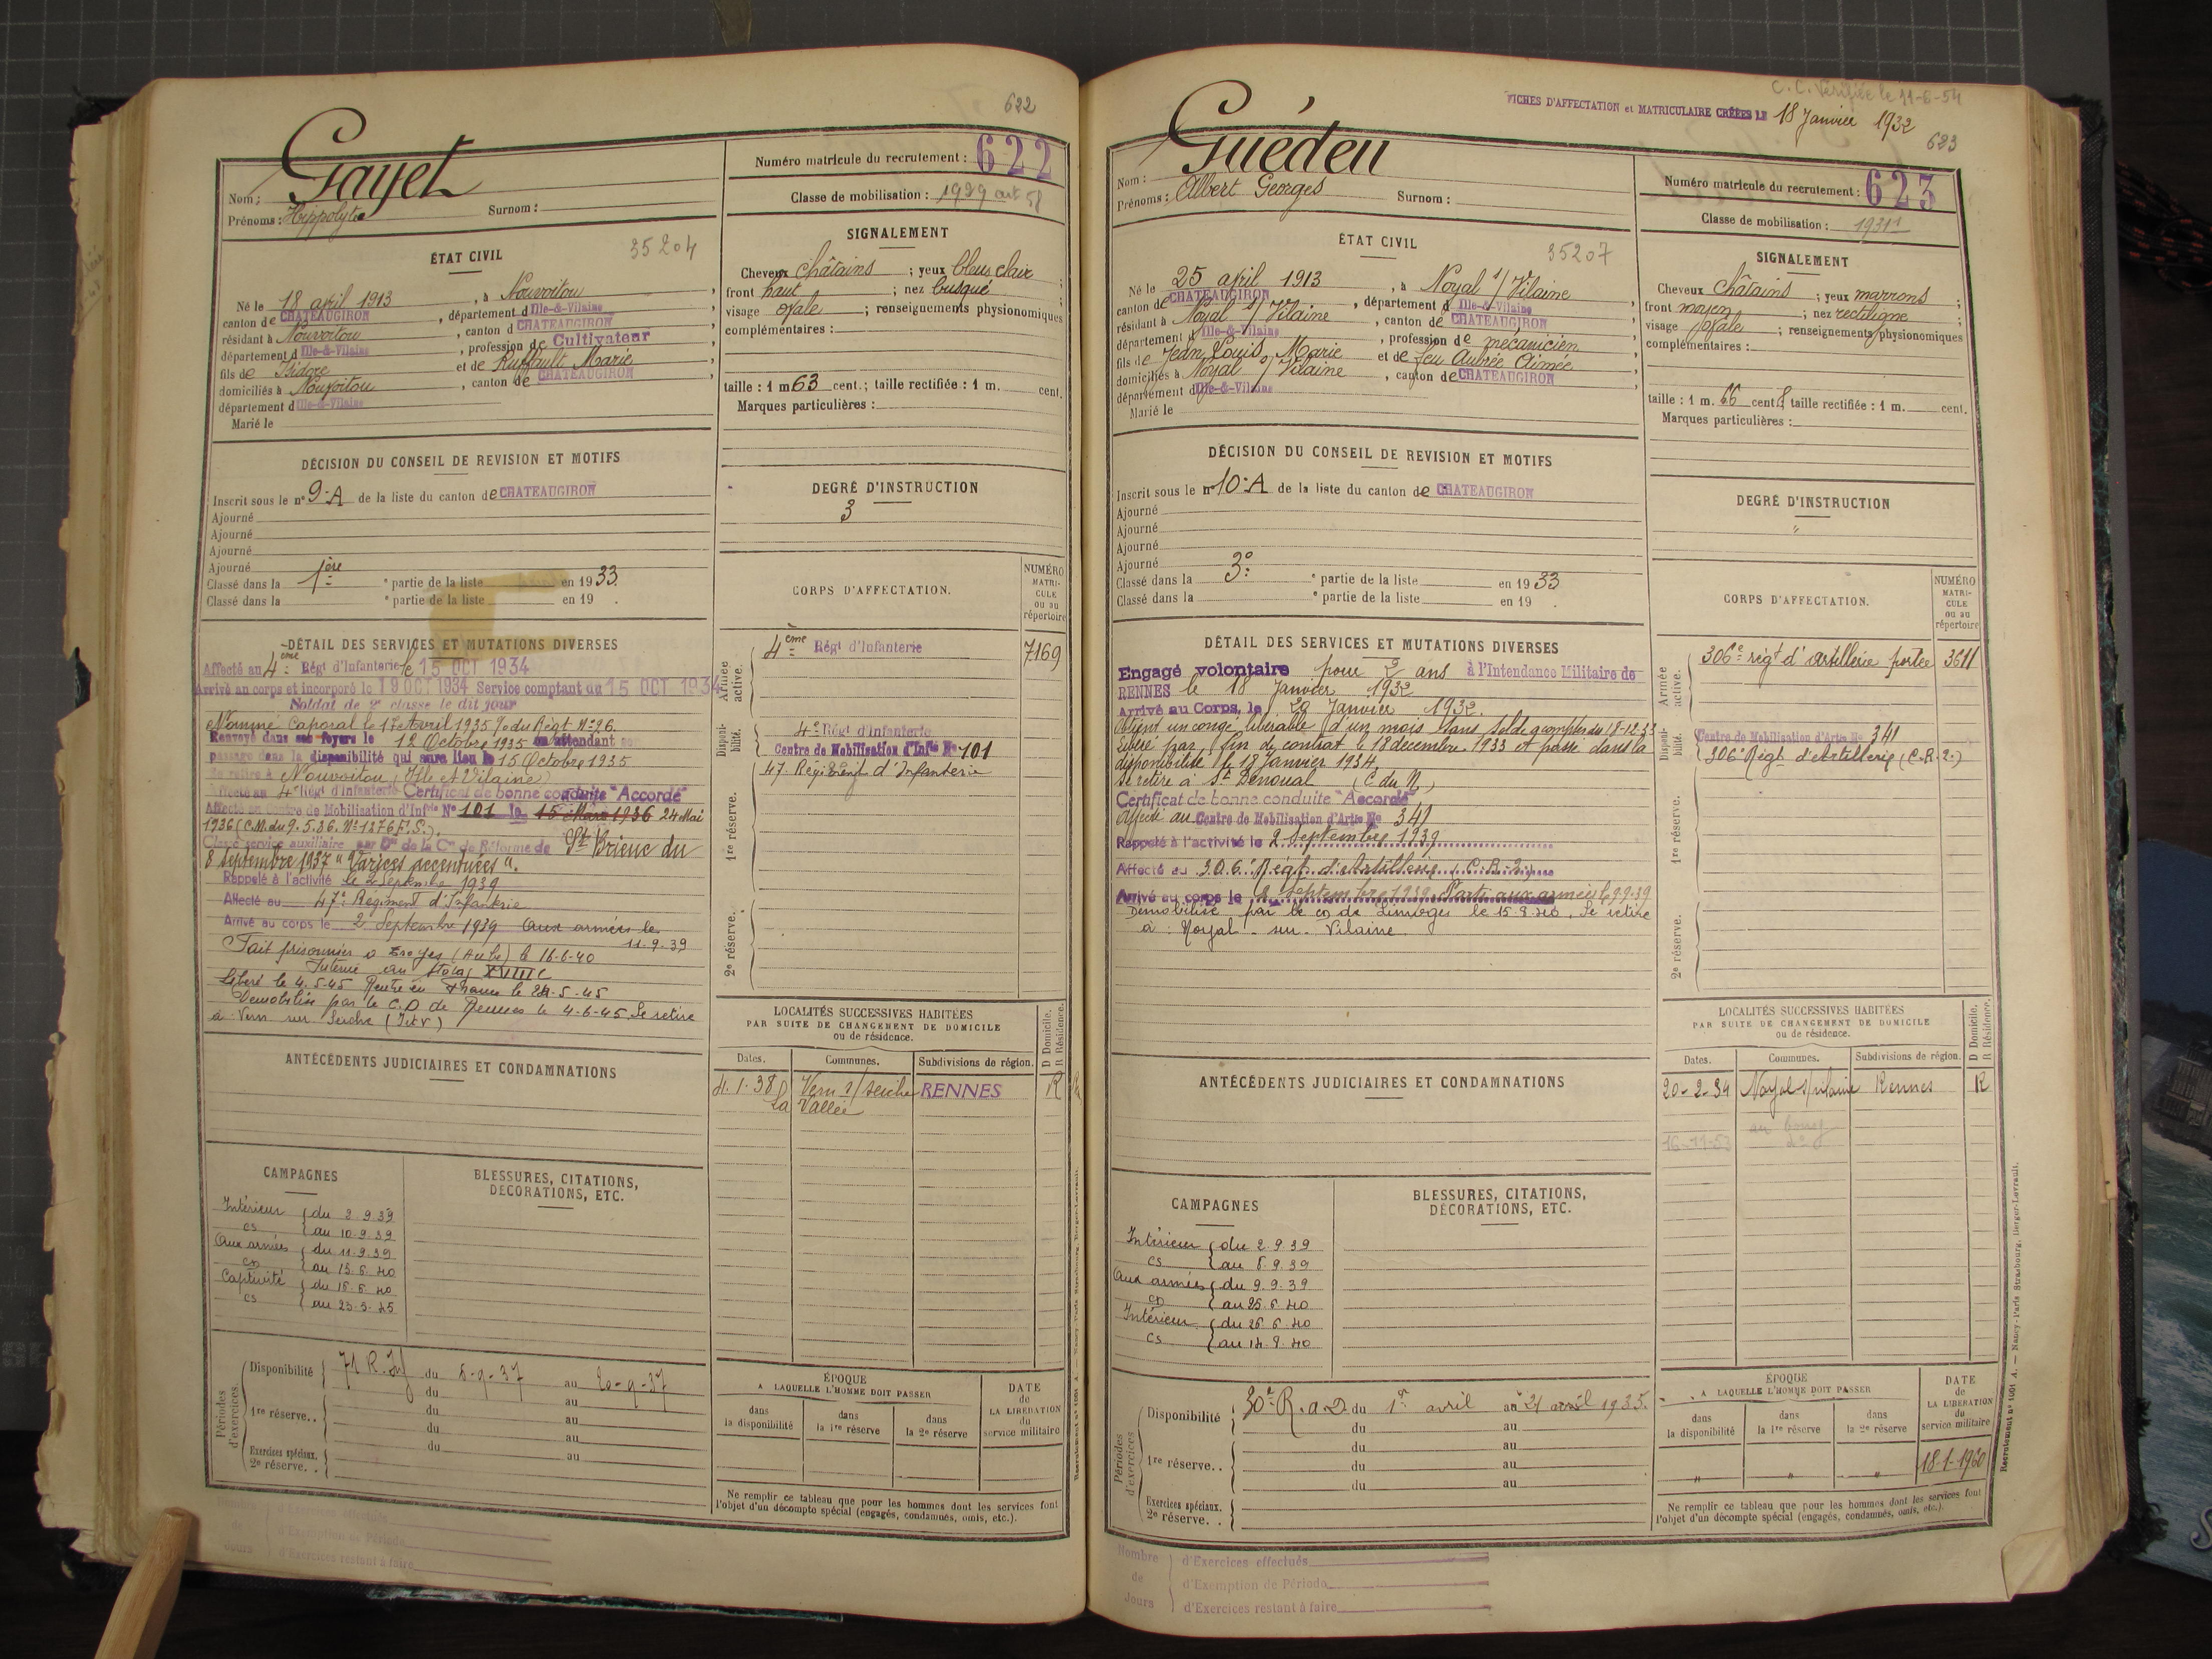 622
Gayet
Nom :
Prénoms : Hippolyte Surnom :
Numéro matricule du recrutement : 622
Classe de mobilisation : 1929
ÉTAT CIVIL
35204
Né le 18 avril 1913, à Nouvoitou,
canton de CHATEAUGIRON, département d Ille-&-Vilaine
résidant à Nouvoitou, canton d CHATEAUGIRON
département d Ille-&-Vilaine, profession de Cultivateur
fils de Isidore et de Ruffault Marie
domiciliés à Nouvoitou, canton de CHATEAUGIRON,
département d Ille-&-Vilaine
Marié le
SIGNALEMENT
Cheveux châtains ; yeux bleus clair ;
front haut ; nez busqué ;
visage ovale ; renseignements physionomiques
complémentaires :
taille : 1 m 63 cent. ; taille rectifiée : 1 m. cent.
Marques particulières :
DÉCISION DU CONSEIL DE REVISION ET MOTIFS
Inscrit sous le n° 9.A de la liste du canton de CHATEAUGIRON
Ajourné
Ajourné
Ajourné
Ajourné
Classé dans la 1ère e partie de la liste en 1933.
Classé dans la e partie de la liste en 19 .
DEGRÉ D'INSTRUCTION
3
DÉTAIL DES SERVICES ET MUTATIONS DIVERSES
Affecté au 4ème Régt d'Infanterie le 15 OCT 1934
Arrivé au corps et incorporé le 19 OCT 1934 Service comptant du 15 OCT 1934
Soldat de 2e classe le dit jour
Nommé Caporal le 17 Avril 1935 du Régt N° 96.
Renvoyé dans ses foyers le 12 Octobre 1935 en attendant son
passage dans la disponibilité qui aura lieu le 15 Octobre 1935
Se retire à Nouvoitou (Ille et Vilaine)
Affecté au 4e Régt d'Infanterie Certificat de bonne conduite "Accordé"
Affecté au Centre de Mobilisation d'Infrie N° 101 le 15 Mars 1936 24 Mai
1936 (C.M. du 9.5.36. N° 1376 F.S.).
Classé service auxiliaire par Don de la Con de Réforme de St Brieuc du
8 Septembre 1937 "Varices accentuées".
Rappelé à l'activité le 2 Septembre 1939
Affecté au 47e Régiment d'Infanterie
Arrivé au corps le 2 Septembre 1939 Aux armées le
11.9.39
Fait prisonnier à Troyes (Aube) le 16-6-40
Interné au stalag XVIII C
Libéré le 4.5.45 Rentré en France le 24.5-45
Démobilisé par le C.D de Rennes le 4-6-45. Se retire
à Vern sur Seiche (I et V)
CORPS D'AFFECTATION.
NUMÉRO MATRICULE ou au répertoire
Armée active.
4ème Régt d'Infanterie 7169
Disponibilité.
4e Régt d'Infanterie
Centre de Mobilisation d'Infie N° 101
47 Régiment d'Infanterie
1re réserve.
2e réserve.
LOCALITÉS SUCCESSIVES HABITÉES
PAR SUITE DE CHANGEMENT DE DOMICILE
ou de résidence.
D Domicile. R Résidence.
Dates. Communes. Subdivisions de région.
4.1.38 Vern s/ seiche RENNES R
La Vallée
ANTÉCÉDENTS JUDICIAIRES ET CONDAMNATIONS
CAMPAGNES
BLESSURES, CITATIONS,
DÉCORATIONS, ETC.
Intérieur du 2.9.39
cs au 10.9.39
Aux armées du 11.9.39
cd au 15.6.40
Captivité du 16.6.40
cs au 23.5.45
Périodes d'exercices.
Disponibilité 71 R.If du 5-9-37 au 20-9-37
du au
1re réserve.. du au
du au
du au
Exercices spéciaux.
2e réserve..
ÉPOQUE
A LAQUELLE L'HOMME DOIT PASSER
DATE de LA LIBÉRATION du service militaire
dans la disponibilité dans la 1re réserve dans la 2e réserve
Ne remplir ce tableau que pour les hommes dont les services font
l'objet d'un décompte spécial (engagés, condamnés, omis, etc.).
d'Exemption de Période
Jours d'Exercices restant à faire
C.C. Vérifiée le 11-6-54
FICHES D'AFFECTATION et MATRICULAIRE CRÉÉES LE 18 Janvier 1932
623
Guéden
Nom :
Prénoms : Albert Georges Surnom :
Numéro matricule du recrutement : 623
Classe de mobilisation : 1931
ÉTAT CIVIL
35207
Né le 25 avril 1913, à Noyal s/ Vilaine
canton de CHATEAUGIRON, département d Ille-&-Vilaine,
résidant à Noyal s/ Vilaine, canton de CHATEAUGIRON
département d Ille-&-Vilaine, profession de mécanicien
fils de Jean Louis Marie et de feu Aubrée Aimée
domiciliés à Noyal s/ Vilaine, canton de CHATEAUGIRON
département d Ille-&-Vilaine
Marié le
SIGNALEMENT
Cheveux châtains ; yeux marrons ;
front moyen ; nez rectiligne ;
visage ovale ; renseignements physionomiques
complémentaires :
taille : 1 m. 66 cent. ; taille rectifiée : 1 m. cent.
Marques particulières :
DÉCISION DU CONSEIL DE REVISION ET MOTIFS
Inscrit sous le n° 10.A de la liste du canton de CHATEAUGIRON
Ajourné
Ajourné
Ajourné
Ajourné
Classé dans la 3e e partie de la liste en 1933
Classé dans la e partie de la liste en 19 .
DEGRÉ D'INSTRUCTION
"
DÉTAIL DES SERVICES ET MUTATIONS DIVERSES
Engagé volontaire pour 2 ans à l'Intendance Militaire de
RENNES le 18 Janvier 1932
Arrivé au Corps, le 20 Janvier 1932.
Obtient un congé libérable d'un mois sans solde à compter du 18-12-33
Libéré par fin de contrat le 18 décembre 1933 et passé dans la
disponibilité le 18 Janvier 1934.
Se retire à St Dénoual (C du N)
Certificat de bonne conduite "Accordé"
Affecté au Centre de Mobilisation d'Artie N° 341
Rappelé à l'activité le 2 Septembre 1939
Affecté au 306e Régt d'Artillerie (C.R.2)
Arrivé au corps le 2 septembre 1939. Parti aux armées le 9.9.39
Démobilisé par le CD de Limoges le 15.8.40. Se retire
à : Noyal - sur - Vilaine
CORPS D'AFFECTATION.
NUMÉRO MATRICULE ou au répertoire
Armée active.
306e régt d'artillerie portée 3611
Disponibilité.
Centre de Mobilisation d'Artie N° 341
306e Régt d'Artillerie (C.R.2.)
1re réserve.
2e réserve.
LOCALITÉS SUCCESSIVES HABITÉES
PAR SUITE DE CHANGEMENT DE DOMICILE
ou de résidence.
D Domicile. R Résidence.
Dates. Communes. Subdivisions de région.
20-2-34 Noyal-s/vilaine Rennes R
16-11-53 au bourg
ANTÉCÉDENTS JUDICIAIRES ET CONDAMNATIONS
CAMPAGNES
BLESSURES, CITATIONS,
DÉCORATIONS, ETC.
Intérieur du 2.9.39
cs au 8.9.39
Aux armées du 9.9.39
cd au 25.6.40
Intérieur du 26.6.40
cs au 14.8.40
Périodes d'exercices
Disponibilité 30e R.a.D. du 1er avril au 21 avril 1935.
du au
1re réserve.. du au
du au
du au
Exercices spéciaux.
2e réserve..
ÉPOQUE
A LAQUELLE L'HOMME DOIT PASSER
DATE de LA LIBÉRATION du service militaire
dans la disponibilité dans la 1re réserve dans la 2e réserve
" " " 18-1-1960
Ne remplir ce tableau que pour les hommes dont les services font
l'objet d'un décompte spécial (engagés, condamnés, omis, etc.).
Nombre d'Exercices effectués
de d'Exemption de Période
Jours d'Exercices restant à faire
Recrutement n° 1001 A. — Nancy-Paris-Strasbourg, Berger-Levrault.